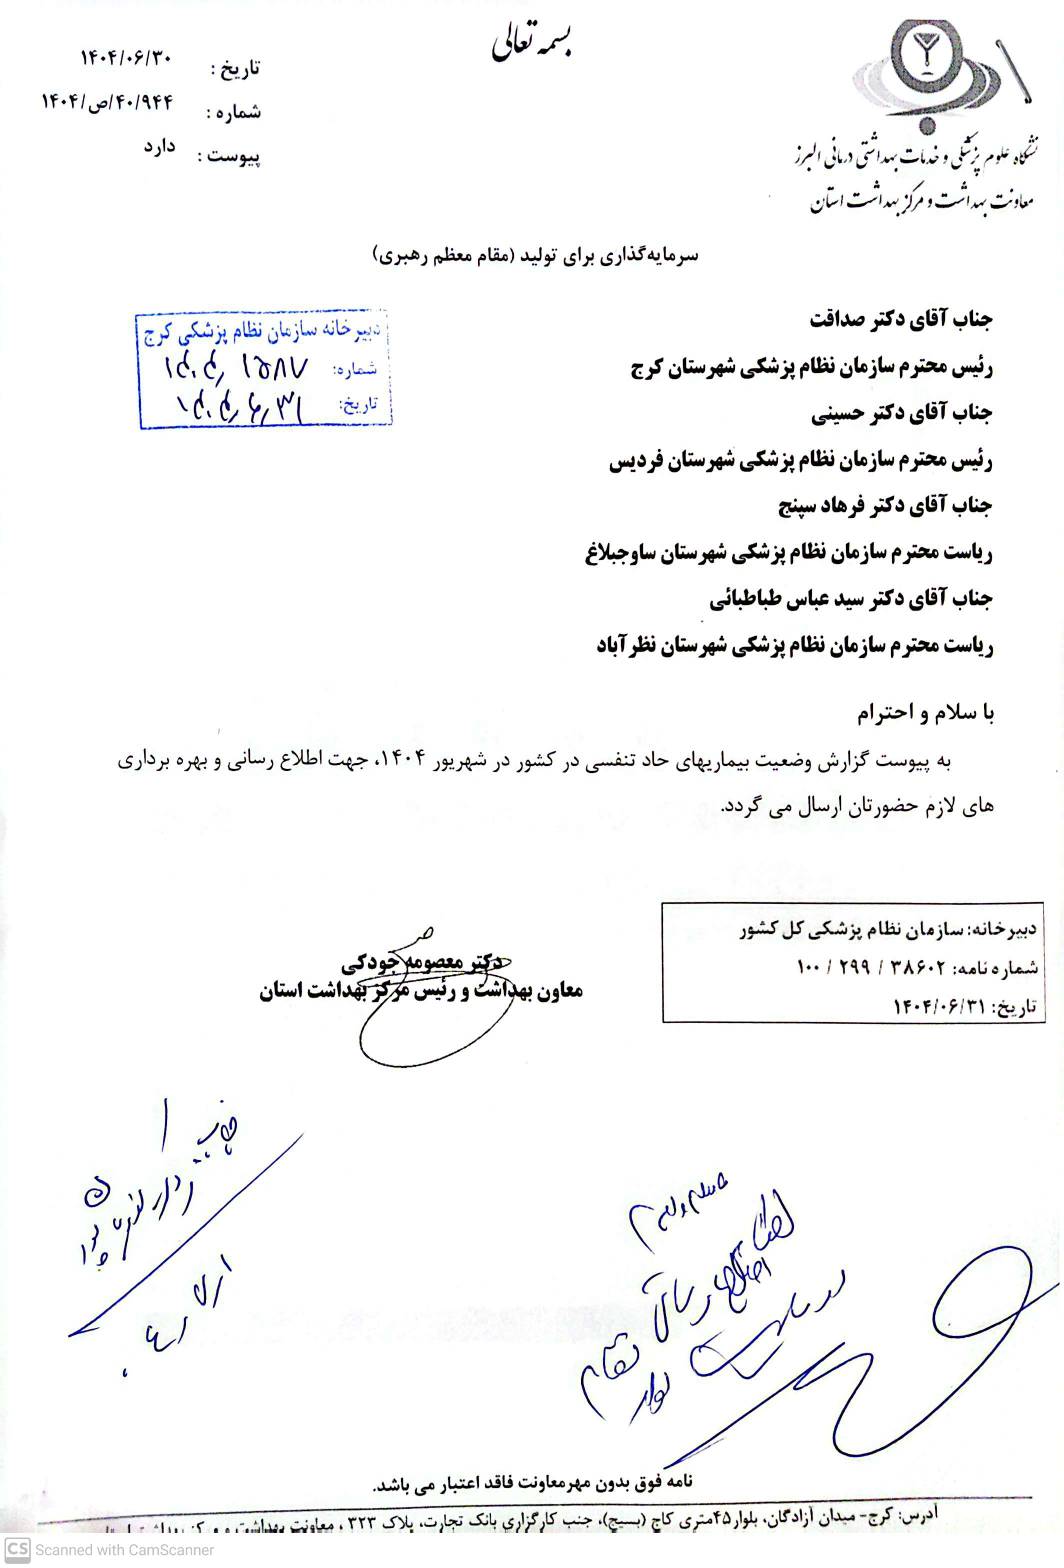 بسمه تعالی
تاریخ : ۱۴۰۴/۰۶/۳۰
شماره : ۱۴۰۴/ص/۴۰/۹۴۴
پیوست : دارد
دانشگاه علوم پزشکی و خدمات بهداشتی درمانی البرز
معاونت بهداشت و مرکز بهداشت استان
سرمایه‌گذاری برای تولید (مقام معظم رهبری)
دبیرخانه سازمان نظام پزشکی کرج
شماره:
تاریخ:
جناب آقای دکتر صداقت
رئیس محترم سازمان نظام پزشکی شهرستان کرج
جناب آقای دکتر حسینی
رئیس محترم سازمان نظام پزشکی شهرستان فردیس
جناب آقای دکتر فرهاد سپنج
ریاست محترم سازمان نظام پزشکی شهرستان ساوجبلاغ
جناب آقای دکتر سید عباس طباطبائی
ریاست محترم سازمان نظام پزشکی شهرستان نظرآباد
با سلام و احترام
به پیوست گزارش وضعیت بیماریهای حاد تنفسی در کشور در شهریور ۱۴۰۴، جهت اطلاع رسانی و بهره برداری
های لازم حضورتان ارسال می گردد.
دکتر معصومه جودکی
معاون بهداشت و رئیس مرکز بهداشت استان
دبیرخانه: سازمان نظام پزشکی کل کشور
شماره نامه: ۳۸۶۰۲ / ۲۹۹ / ۱۰۰
تاریخ: ۱۴۰۴/۰۶/۳۱
نامه فوق بدون مهرمعاونت فاقد اعتبار می باشد.
آدرس: کرج- میدان آزادگان، بلوار۴۵متری کاج (بسیج)، جنب کارگزاری بانک تجارت، پلاک ۳۲۳ ، معاونت بهداشت و مرکز بهداشت
CS Scanned with CamScanner